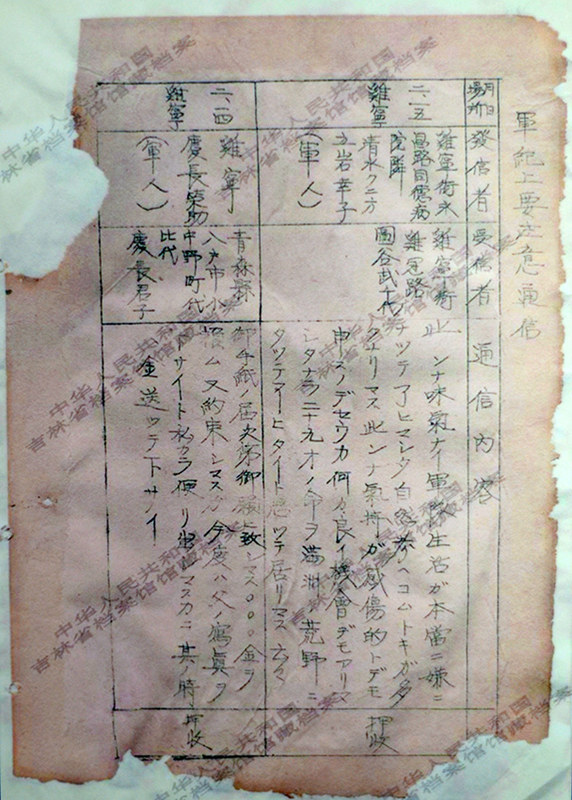 軍紀上要注意通信
月日
場所
發信者
受信者
通信内容
二、一五
雞寧
雞寧街永
昌路同德病
院隣
清水クニ方
立岩幸子
(軍人)
雞寧街
雞冠路
園谷武千代
此ンナ味氣ナイ軍隊生活ガ本當ニ嫌ニ
ナツテ了ヒマシタ自然考ヘコムトキガ多
クナリマス此ンナ氣持ガ感傷的トデモ
申スノデセウカ何カ良イ機會デモアリマ
シタナラ二十九才ノ命ヲ滿洲ノ荒野ニ
タツテアヒタイト思ツテ居リマス云々
押收
二、一四
雞寧
雞寧
慶長榮助
(軍人)
青森縣
八戸市小
中野町代
比代
慶長君子
御手紙届次第御願致シマス〇〇〇金ヲ
頼ム又約束シマスガ今度ハ父ノ寫眞ヲ
サイト私カラ便リ出シマスカニ其ノ時
金送ツテ下サイ
押收
中华人民共和国
吉林省档案馆馆藏档案